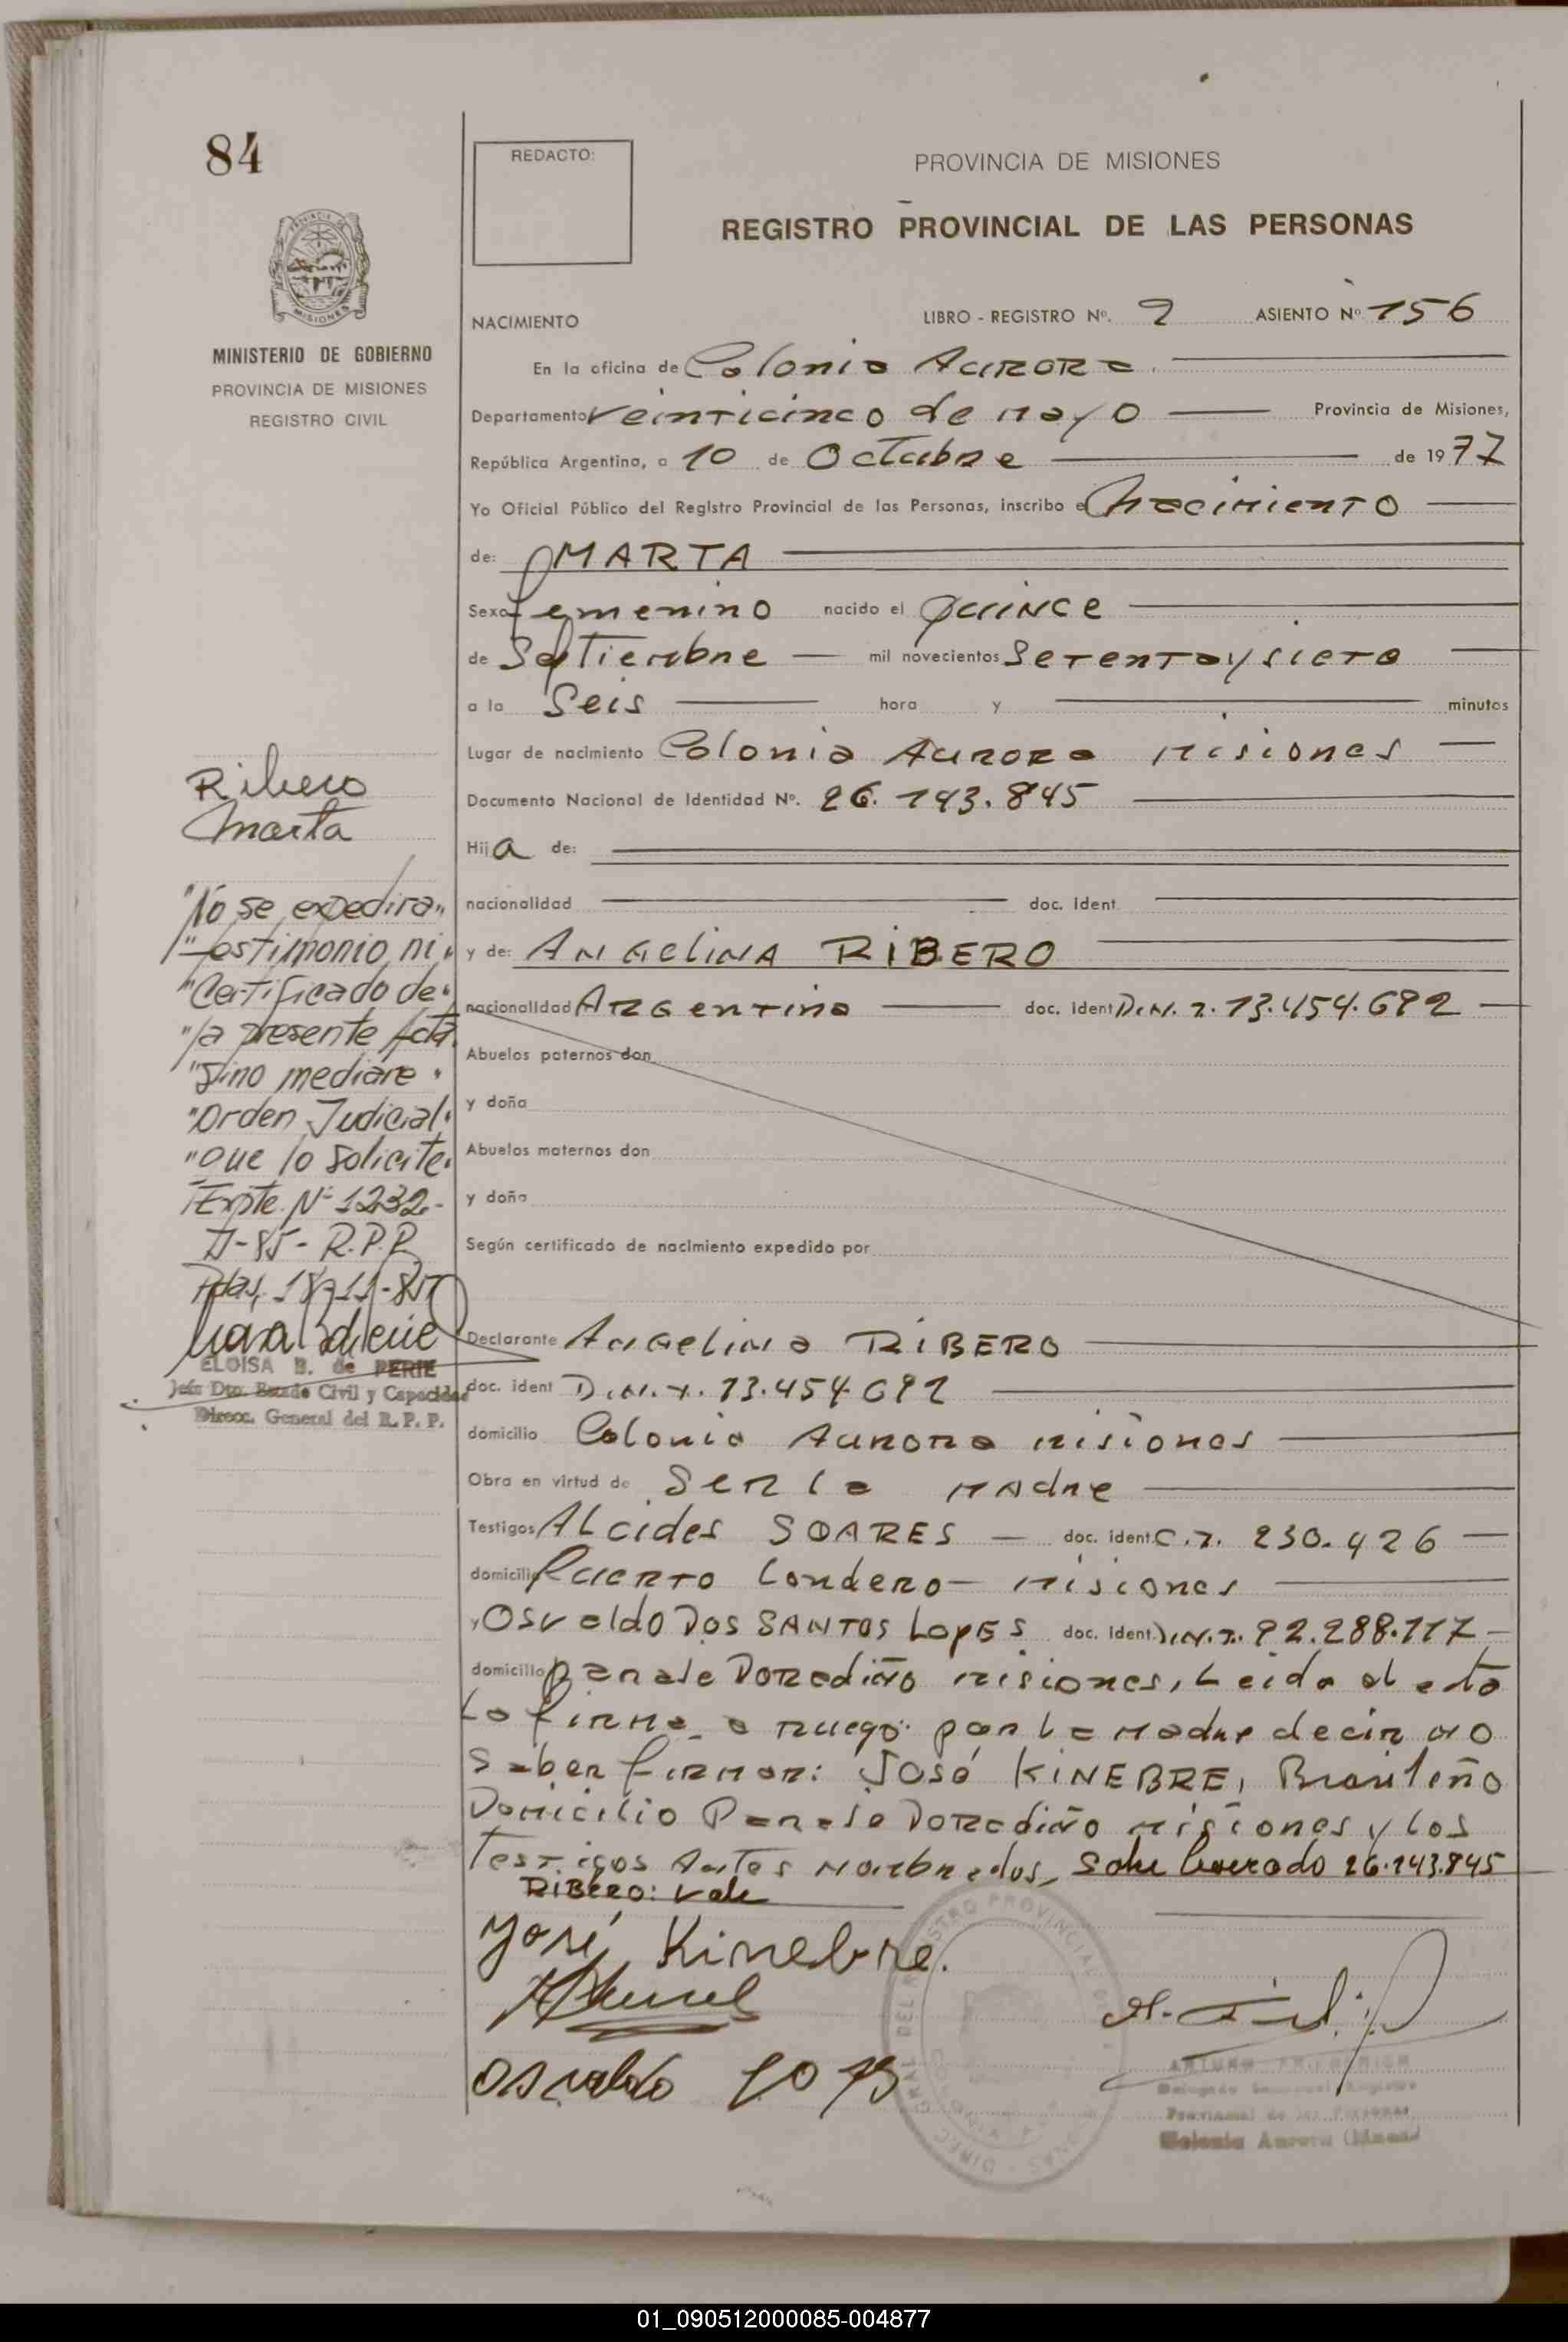 84
REDACTO:
PROVINCIA DE MISIONES
REGISTRO PROVINCIAL DE LAS PERSONAS
MISIONES
MINISTERIO DE GOBIERNO
PROVINCIA DE MISIONES
REGISTRO CIVIL
NACIMIENTO LIBRO - REGISTRO Nº. 2 ASIENTO Nº 156
En la oficina de Colonia Aurora
Departamento Veinticinco de Mayo Provincia de Misiones,
República Argentina, a 10 de Octubre de 1977
Yo Oficial Público del Registro Provincial de las Personas, inscribo el Nacimiento
de: MARTA
Sexo femenino nacido el Quince
de Septiembre mil novecientos Setenta y siete
a la Seis hora y minutos
Lugar de nacimiento Colonia Aurora Misiones
Documento Nacional de Identidad Nº. 26.143.845
Hija de:
nacionalidad doc. ident
y de: ANGELINA RIBERO
nacionalidad Argentina doc. ident D.N.I. 13.454.692
Abuelos paternos don
y doña
Abuelos maternos don
y doña
Según certificado de nacimiento expedido por
Declarante Angelina RIBERO
doc. ident D.N.I. 13.454.692
domicilio Colonia Aurora Misiones
Obra en virtud de Ser la Madre
Testigos Alcides SOARES doc. ident. C.I. 230.426
domicilio Puerto Londero - Misiones
y Osvaldo DOS SANTOS LOPES doc. ident. D.N.I. 92.288.117
domicilio Misiones, Leida el acta
La firma a ruego por La Madre decir no
Saber firmar: José KINEBRE, Brasileño
Domicilio Misiones y los
Testigos Antes Nombrados, Sobre borrado 26.143.845
RIBERO: Vale
José Kinebre.
Osvaldo
Ribero
Marta
"No se expedira"
"testimonio ni"
"Certificado de"
"la presente Acta"
"Sino mediare"
"Orden Judicial"
"que lo solicite"
Expte. Nº 1232-
-85- R.P.P.
Pdas, 18-11-85
ELOISA B. de PERIE
Jefe Dto. Estado Civil y Capacidad
Direcc. General del R. P. P.
Provincial de las Personas
Colonia Aurora
01_090512000085-004877